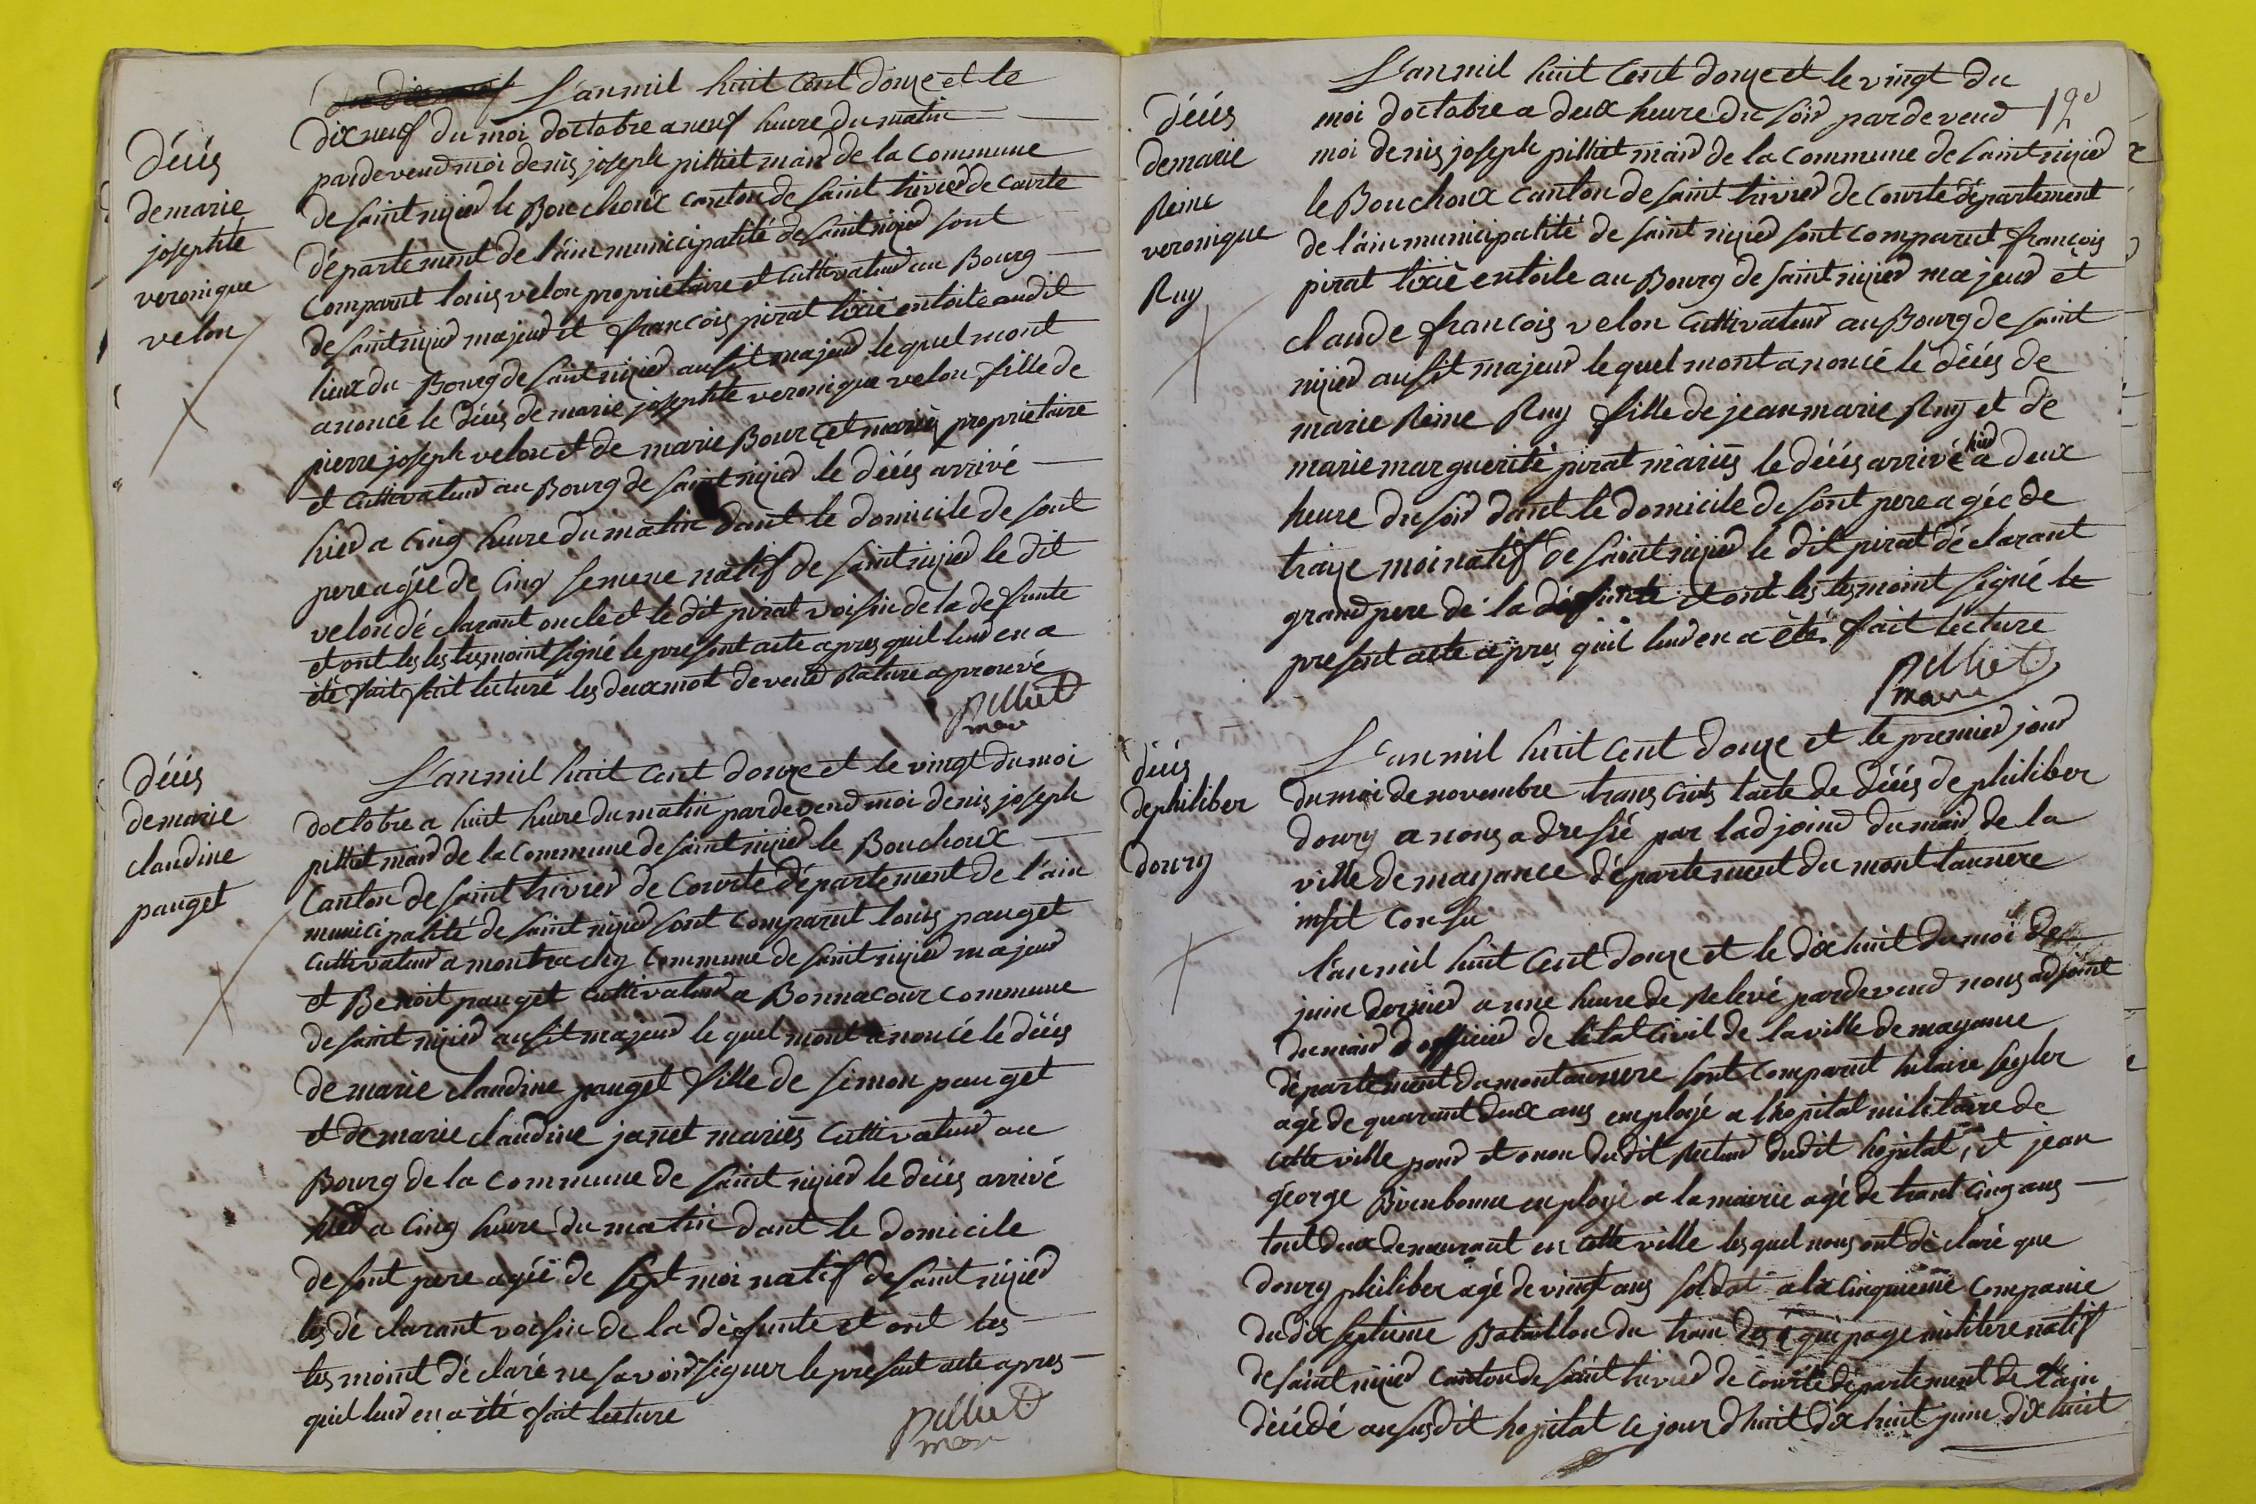 décés
de marie
josephte
veronique
velon
L'an mil huit cent douze et le
dix neuf du moi d'octobre a neuf heure du matin
pardevend moi denis joseph pilliet maird de la Commune
de saint nizied le Bouchoux canton de saint trivied de courte
département de l'ain municipalité de saint nizied sont
comparut louis velon proprietaire et cultivatued au Bourg
de saint nizied majeud et françois pirat tixié entoile audit
lieux du Bourg de saint nizied ausit majeud le quel mont
anoncé le décés de marie josephte veronique velon fille de
pierre joseph velon et de marie Bourcet mariés proprietaire
et cultivatued au Bourg de saint nizied le décés arrivé
hied a cinq heure du matin dant le domicile de sont
pere agée de cinq semene natif de saint nizied le dit
velon déclarant oncle et le dit pirat voisin de la defunte
et ont les les tesmoint signé le present acte apres quil leud en a
été fait fait lecture les deux mot devend Rature aprouvé
pilliet
mair
décés
de marie
claudine
pauget
L'an mil huit cent douze et le vingt du moi
doctobre a huit heure du matin pardevend moi denis joseph
pilliet maird de la commune de saint nizied le Bouchoux
Canton de saint trivied de Courte département de l'ain
municipalité de saint nizied sont comparut louis pauget
cultivatued a montrachy Commune de saint nizied majeud
et Benoit pauget cultivatued a Bonnacour commune
de saint nizied ausit majeud le quel mont anoncé le décés
de marie claudine pauget fille de simon pauget
et de marie claudine janet mariés cultivatued au
Bourg de la commune de saint nizied le décés arrivé
hied a cinq heure du matin dant le domicile
de sont pere agée de sept moi natif de saint nizied
les déclarant voisin de la défunte et ont les
tesmoint déclaré ne savoird signer le present acte apres
quil leud en a été fait lecture
pilliet
mair
12e
décés
de marie
Reine
veronique
Ruy
L'an mil huit cent douze et le vingt du
moi doctobre a deux heure du soird pardevend
moi denis joseph pilliet maird de la commune de saint nizied
le Bouchoux canton de saint trivied de courte département
de l'ain municipalité de saint nizied sont comparut françois
pirat tixié entoile au Bourg de saint nizied majeud et
claude françois velon cultivatued au Bourg de saint
nizied ausit majeud le quel mont anoncé le décés de
marie Reine Ruy fille de jean marie Ruy et de
marie marguerite pirat mariés le décés arrivé hied a deux
heure du soird dant le domicile de sont pere agée de
traize moi natif de saint nizied le dit pirat déclarant
grand pere de la défunte et ont les tesmoint signé le
present acte apres quil leud en a été fait lecture
pilliet
maire
décés
de philiber
doury
L'an mil huit cent douze et le premied joud
du moi de novembre transcrits lacte de décés de philiber
doury a nous adressé par ladjoind du maird de la
ville de mayance département du mont tannere
insit Consu
l'an mil huit cent douze et le dix huit du moi de
juin dernied a une heure de Relevé pardevend nous adjoint
du maird officied de létat civil de la ville de mayance
département du montannere sont comparut hilaire segler
agé de quarant deux ans employé a lhopital militaire de
cette ville poud et a non dudit Recteud dudit hopital, et jean
george Birenbonne employé a la mairie agé de trant cinq ans
tout deux demeurant en cette ville les quel nous ont déclaré que
doury philiber agé de vingt ans soldat a la cinquieme Companie
du dix septieme Bataillon du train des équipage militere natif
de saint nizied canton de saint trivied de courte département de l'ain
décédé au susdit hopital ce jour dhuit dix huit juin dix huit